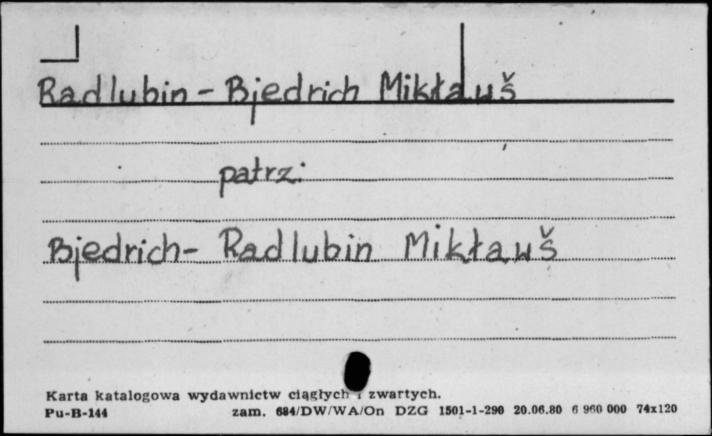 Radlubin - Bjedrich Mikławš
patrz:
Bjedrich - Radlubin Mikławš
Karta katalogowa wydawnictw ciągłych i zwartych.
Pu-B-144 zam. 684/DW/WA/On DZG 1501-1-290 20.06.80 6 960 000 74x120